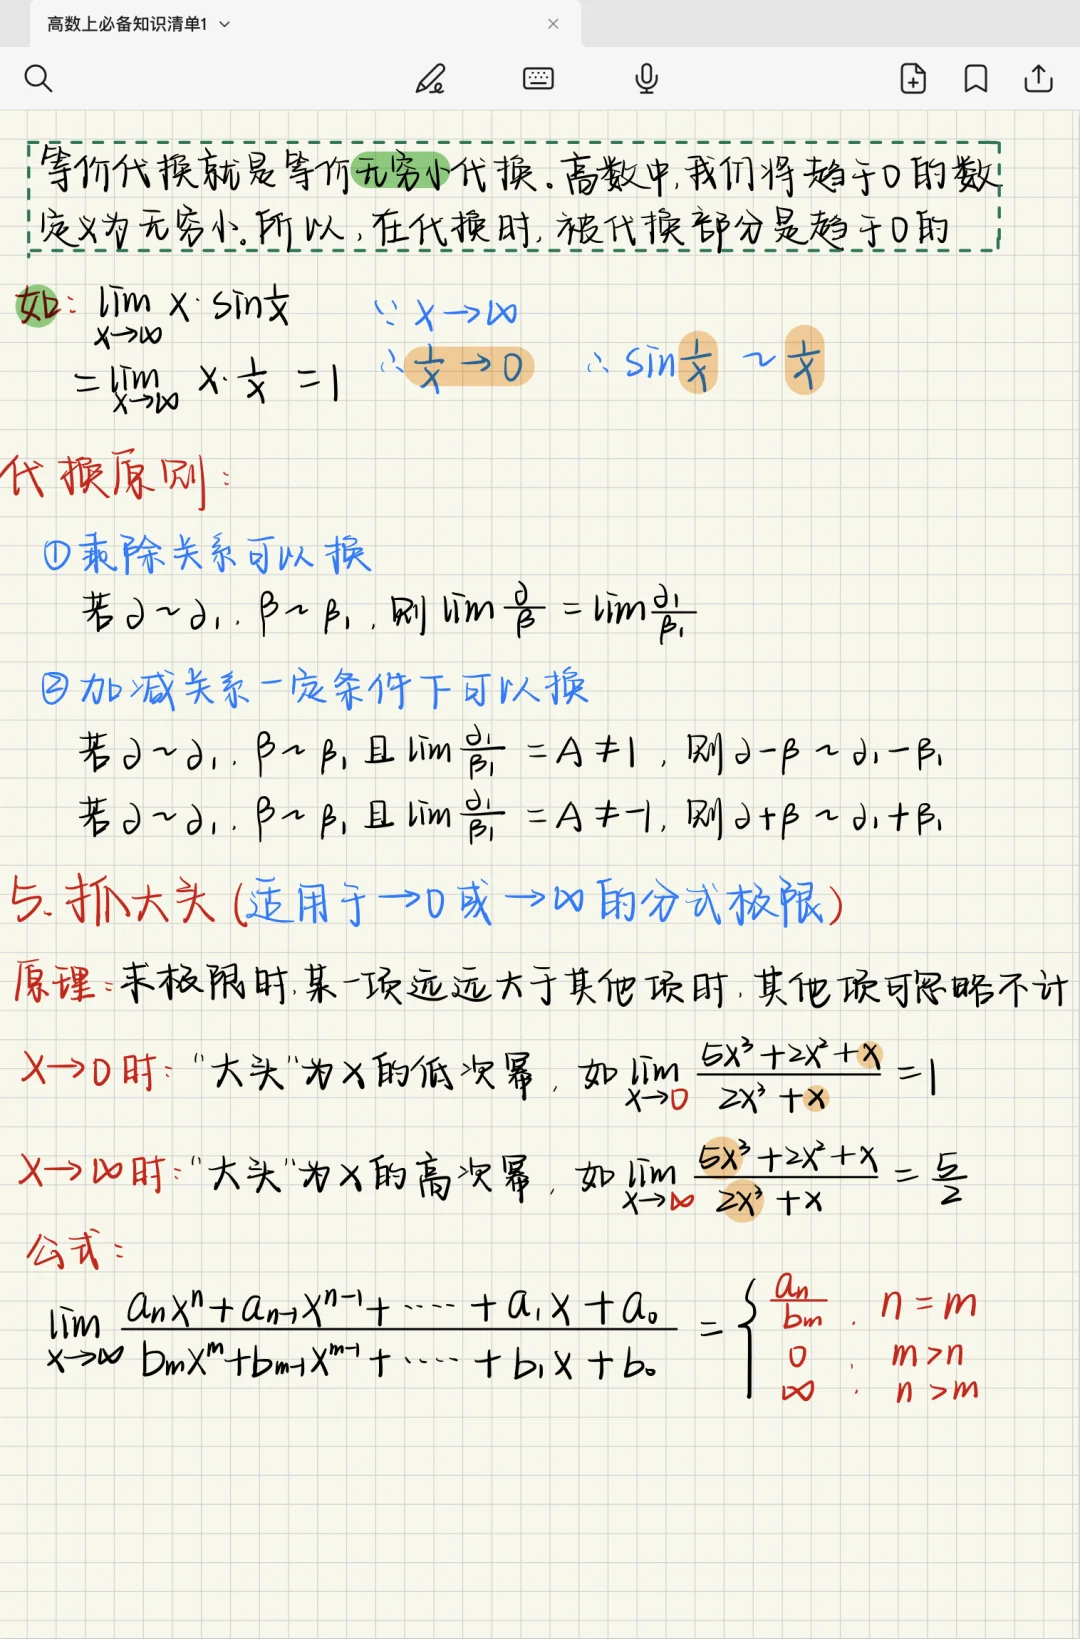 高数上必备知识清单1
等价代换就是等价无穷小代换。高数中,我们将趋于0的数
定义为无穷小。所以,在代换时,被代换部分是趋于0的
如: lim x→∞ x·sin 1/x ∵ x→∞
= lim x→∞ x·1/x = 1 ∴ 1/x→0 ∴ sin 1/x ~ 1/x
代换原则:
①乘除关系可以换
若∂~∂₁, β~β₁, 则 lim ∂/β = lim ∂₁/β₁
②加减关系一定条件下可以换
若∂~∂₁, β~β₁且 lim ∂₁/β₁ = A≠1, 则∂-β~∂₁-β₁
若∂~∂₁, β~β₁且 lim ∂₁/β₁ = A≠-1, 则∂+β~∂₁+β₁
5. 抓大头(适用于→0或→∞的分式极限)
原理:求极限时,某一项远远大于其他项时,其他项可忽略不计
x→0时:"大头"为x的低次幂,如 lim x→0 (5x³+2x²+x)/(2x³+x) = 1
x→∞时:"大头"为x的高次幂,如 lim x→∞ (5x³+2x²+x)/(2x³+x) = 5/2
公式:
lim x→∞ (aₙxⁿ+aₙ₋₁xⁿ⁻¹+……+a₁x+a₀)/(bₘxᵐ+bₘ₋₁xᵐ⁻¹+……+b₁x+b₀) = { aₙ/bₘ, n=m
0, m>n
∞, n>m